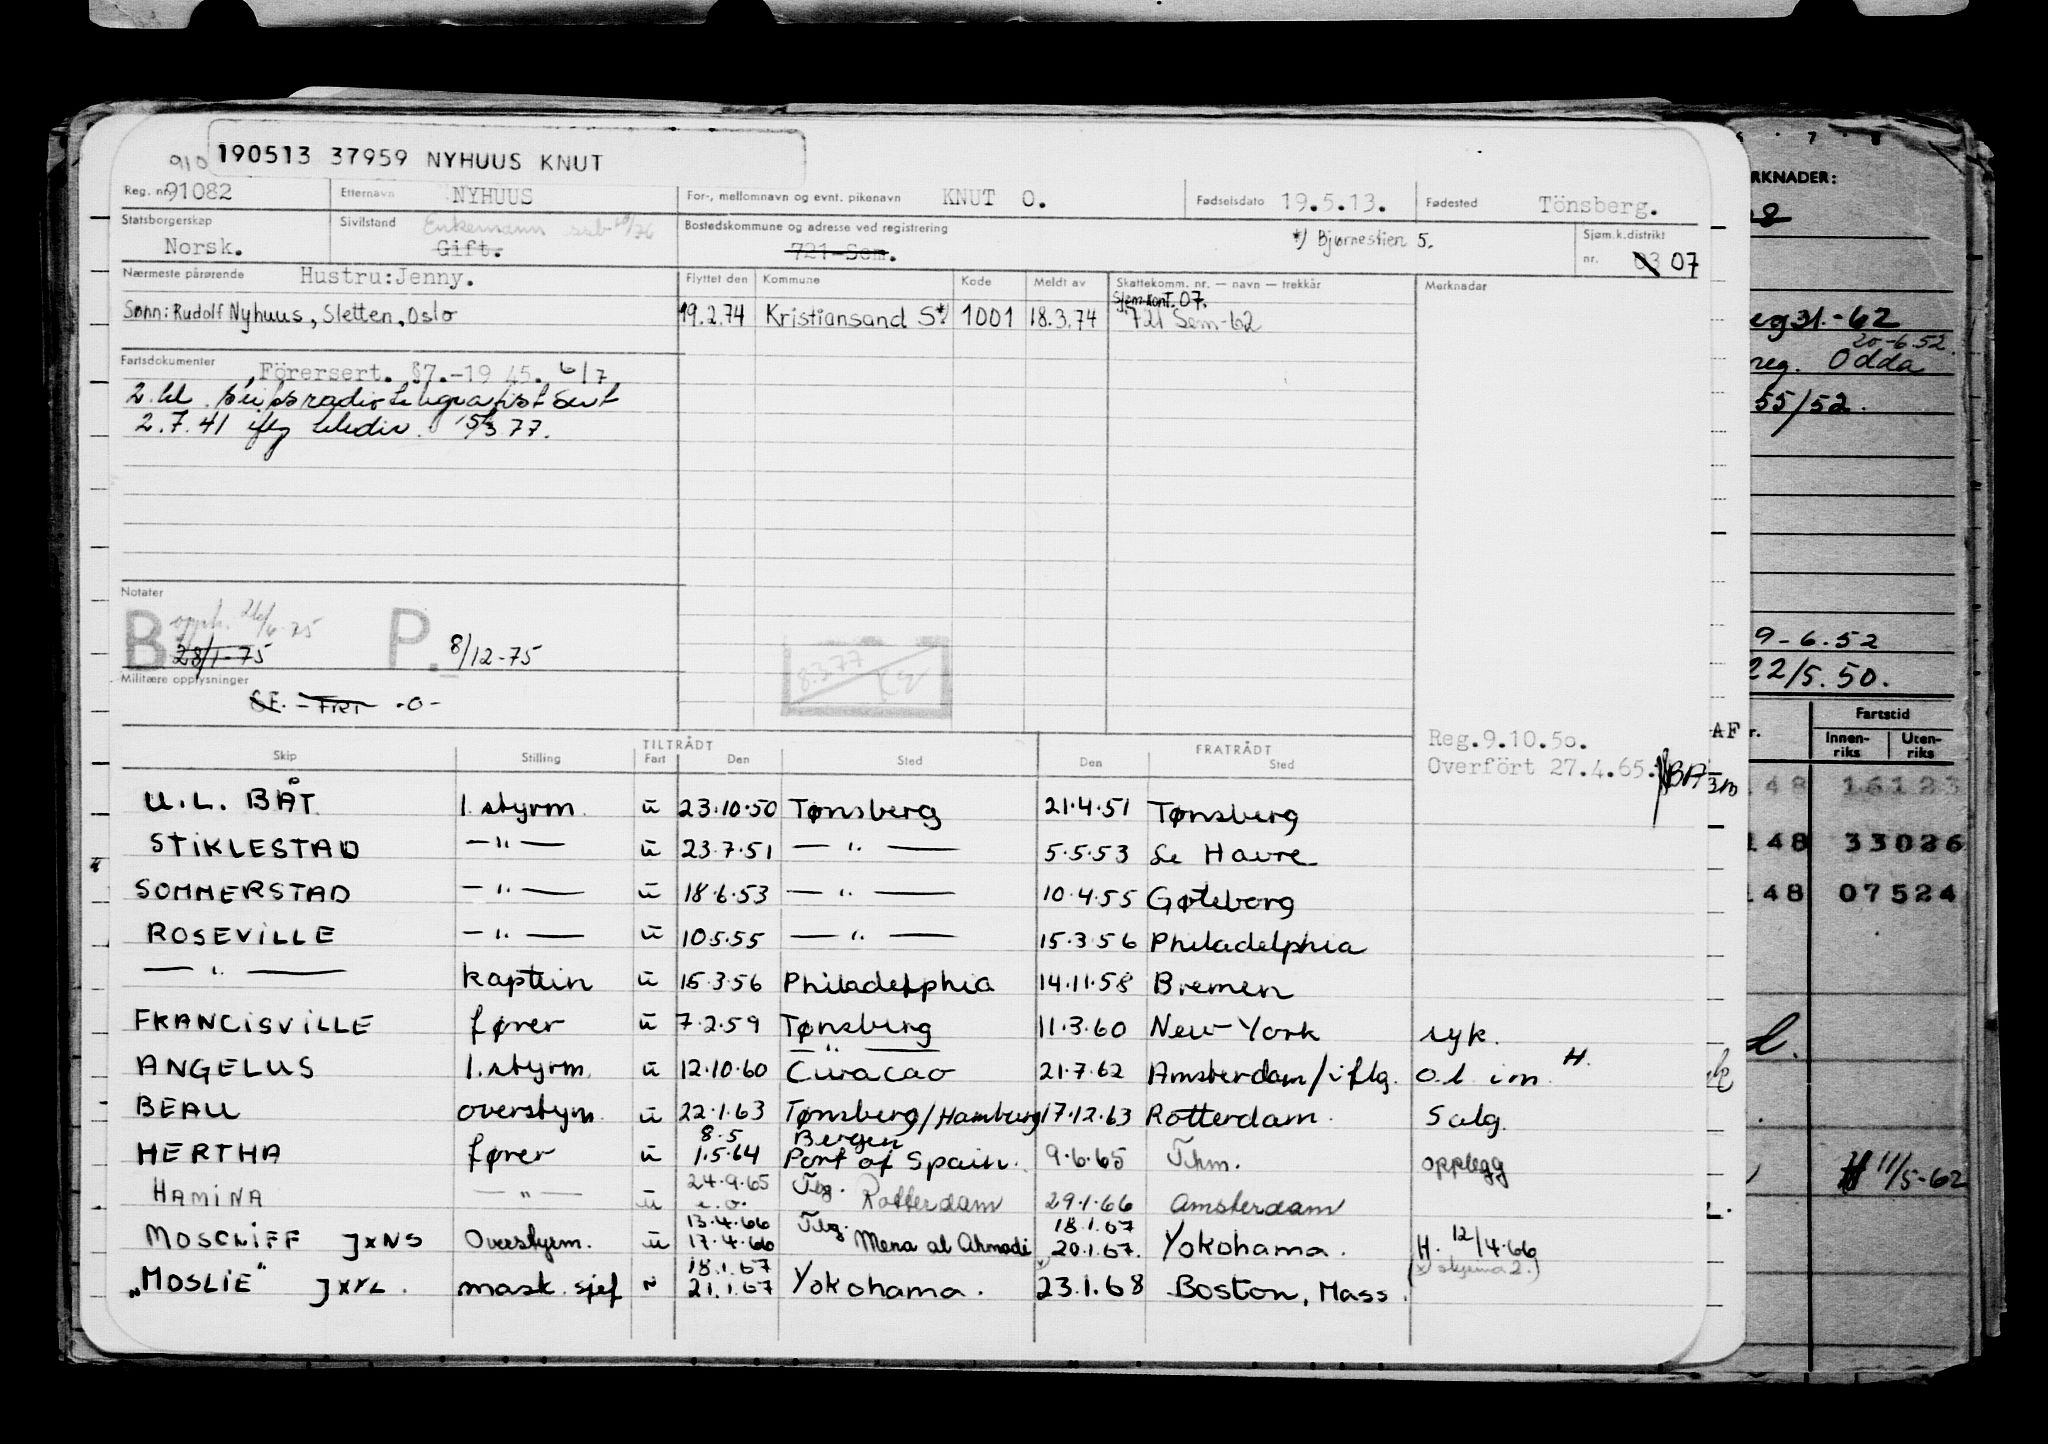 910 190513 37959 NYHUUS KNUT
Reg. nr. 91082 Etternavn NYHUUS For-, mellomnavn og evnt. pikenavn KNUT O. Fødselsdato 19.5.13. Fødested Tönsberg.
Statsborgerskap Norsk. Sivilstand Enkemann Gift. Bostedskommune og adresse ved registrering 721-Sem. *) Bjørnestien 5. Sjøm.k.distrikt nr. 03 07
Nærmeste pårørende Hustru: Jenny. Flyttet den Kommune Kode Meldt av Skattekomm. nr. — navn — trekkår Merknader
Sjøm.kont. 07.
Sønn: Rudolf Nyhuus, Sletten, Oslo 19.2.74 Kristiansand S*) 1001 18.3.74 721 Sem-62
Fartsdokumenter Förersert. §7.-1945. 6/7
2. kl. skipsradiotelegrafist sert
2.7.41 iflg teledir. 15/3 77.
Notater
B opph. 26/6-75
28/1-75 P. 8/12-75
8.3.77
Militære opplysninger
SE. - FRI - -0-
Reg.9.10.50.
Overfört 27.4.65.
Skip Stilling TILTRÅDT Fart Den Sted FRATRÅDT Den Sted
U.L. BÅT 1. styrm. u 23.10.50 Tønsberg 21.4.51 Tønsberg
STIKLESTAD —"— u 23.7.51 —"— 5.5.53 Le Havre
SOMMERSTAD —"— u 18.6.53 —"— 10.4.55 Gøteborg
ROSEVILLE —"— u 10.5.55 —"— 15.3.56 Philadelphia
—"— kaptein u 15.3.56 Philadelphia 14.11.58 Bremen
FRANCISVILLE fører u 7.2.59 Tønsberg 11.3.60 New York syk.
ANGELUS 1. styrm. u 12.10.60 —"— Curacao 21.7.62 Amsterdam/iflg. o.l. inn. H.
BEAU overstyrm. u 22.1.63 Tønsberg/Hamburg 17.12.63 Rotterdam. Salg.
8.5 Bergen
HERTHA fører u 1.5.64 Port of Spain. 9.6.65 Thm. opplegg
24.9.65 Tbg.
HAMINA —"— u e.o. Rotterdam 29.1.66 Amsterdam
13.4.66 Tbg. 18.1.67
MOSCLIFF JXNS Overstyrm. u 17.4.66 Mena al Ahmadi 20.1.67. Yokohama. H. 12/4.66
18.1.67 (x) skjema 2.)
"MOSLIE" JXYL. mask. sjef N 21.1.67 Yokohama. 23.1.68 Boston, Mass.
6 7 8
RKNADER:
eg 31.-62
20-6.52.
reg. Odda
55/52.
9-6.52
22/5.50.
AF r. Fartstid
Innenriks Utenriks
148 16123
148 33026
148 07524
H 11/5-62